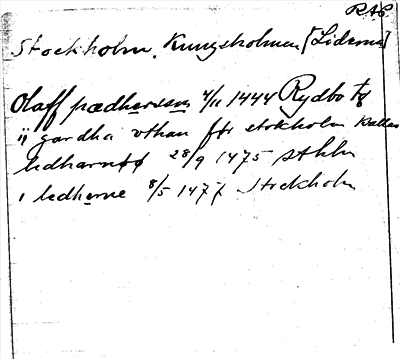 RAP.
Stockholm. Kungsholmen [Liderna]
Olaff pædhersson 4/11 1444 Rydbo
ij gardha vthan för stokholm kallas
ledharnøø 28/9 1475 sthlm
i ledherne 8/5 1477 Stockholm